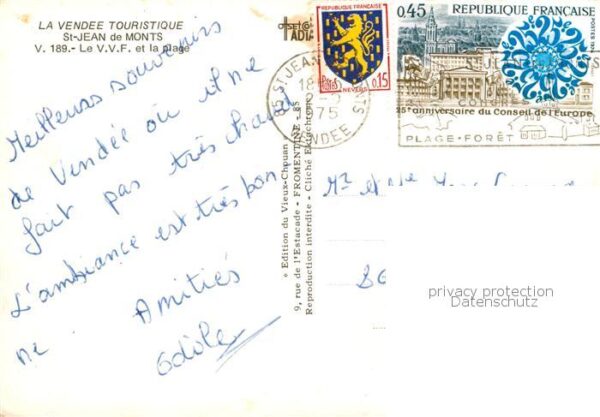 LA VENDEE TOURISTIQUE
St-JEAN de MONTS
V. 189.- Le V.V.F. et la plage
Meilleurs souvenirs
de Vendée où il ne
fait pas très chaud
L'ambiance est très bonne
Amitiés
Odile
« Edition du Vieux-Chouan »
9, rue de l'Estacade - FROMENTINE - 85
Reproduction interdite - Cliché Ektachrome
REPUBLIQUE FRANÇAISE
Postes
0,15
NEVERS
0,45
REPUBLIQUE FRANÇAISE
POSTES
25e anniversaire du Conseil de l'Europe
85 ST JEAN
MONTS
75
VENDEE
PLAGE - FORÊT
privacy protection
Datenschutz